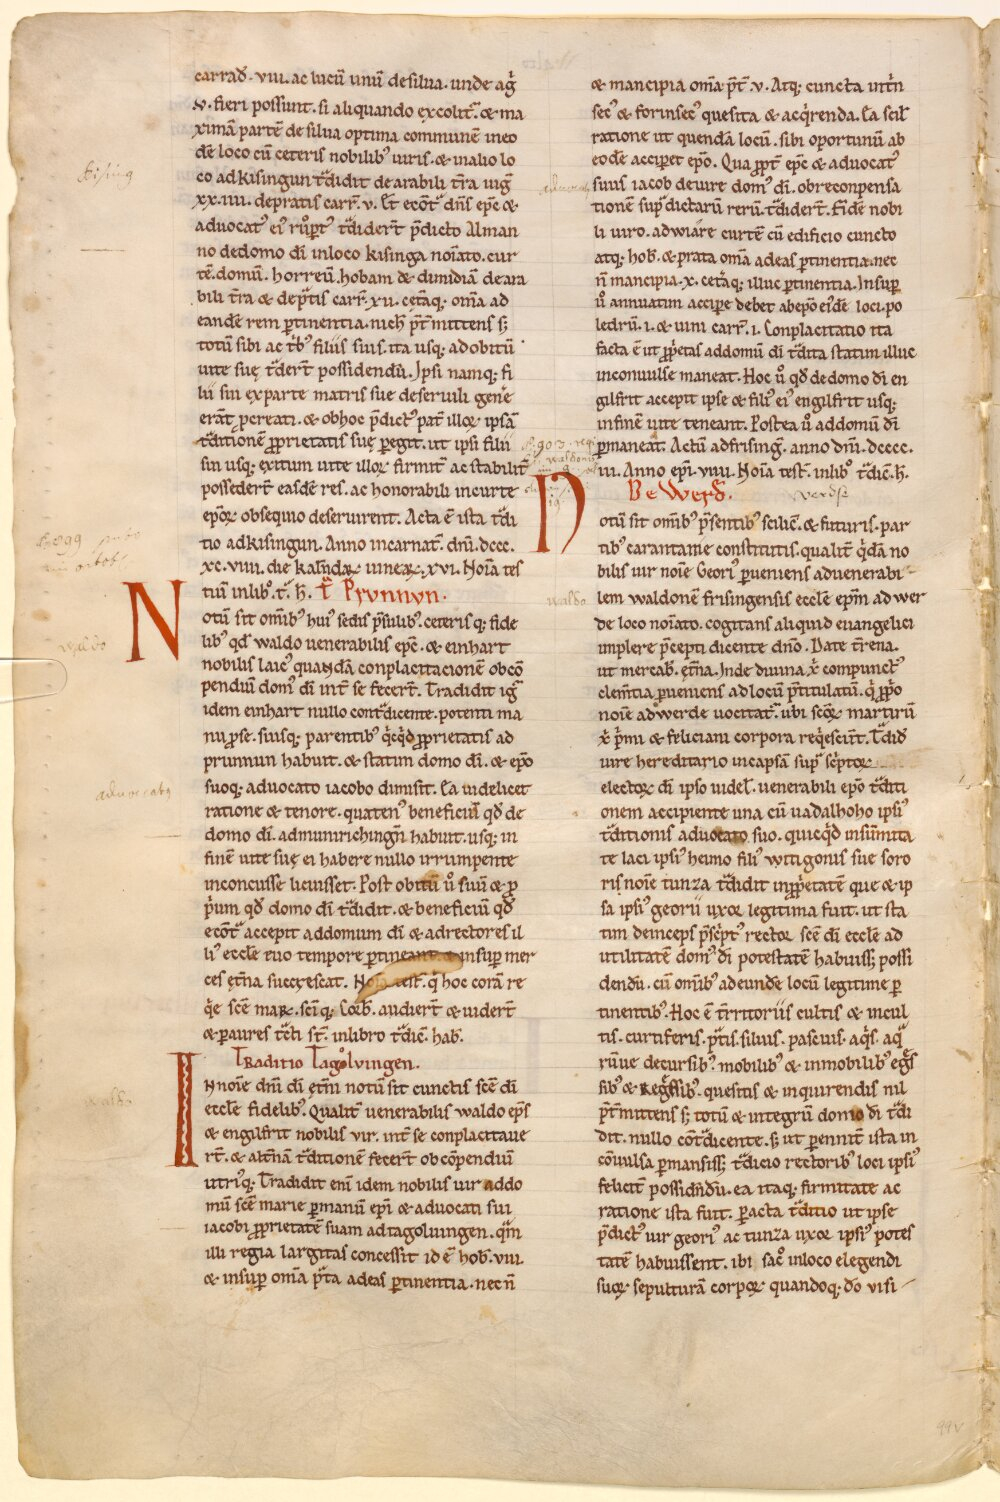 carrad̄. viii. ac lucū unū desilua. unde agͥ
.v. fieri possunt. si aliquando excolit᷑. & ma
ximā partē de silua optima communē in eo
dē loco cū ceteris nobilib; uiris. & in alio lo
co ad kisingun tͣdidit de arabili tr̄a iuḡ
xx.iiii. de pratis carr̄. v. Et ecōt̄ dn̄s ep̄c &
aduocat᷒ ei᷒ tͣdider̄t p̄dicto Alman
no de domo dī in loco kisinga noīato. cur
tē. domū. horreū. hobam & dimidiā de ara
bili tr̄a & de pͣtis carr̄. xii. cetāq; om̄ia ad
eandē rem ꝑtinentia. nich̄ p̄t̄mittens s;
totū sibi ac trib᷒ filiis suis. ita usq; ad obitū
uite suę tͣder̄t possidendū. Ipsi namq; fi
lii sui ex parte matris sue deseruili gen̄e
erāt ꝓcreati. & ob hoc p̄dict᷒ pat̄ illoꝝ ipsā
tͣditionē ꝓprietatis suę ꝑegit. ut ipsi filii
sui usq; exitum uite illoꝝ firmit̄ ac stabilit̄
posseder̄t easdē res. ac honorabili in curte
ep̄oꝝ obsequio deseruirent. Acta ē ista tͣdi
tio ad kisingun. Anno incarnat̄. dn̄i. dccc.
xc.viiii. die kalendaꝝ iuneaꝝ. xvi. Noīa tes
tiū in lib᷒. t̄. h̄. T̄ Prvnnvn.
Notū sit om̄ib᷒ hui᷒ sedis p̄sulib᷒. ceteris q; fide
lib᷒ qd̄ waldo uenerabilis ep̄c. & einhart
nobilis laic᷒ quandā conplacitacionē ob cō
pendiū dom᷒ dī int̄ se fecer̄t. Tradidit igͥ
idem einhart nullo contͣdicente. potenti ma
nu ꝓse. suisq; parentib᷒ qͥcqͥd ꝓprietatis ad
prunnun habuit. & statim domo dī. & ep̄o
suoq; aduocato iacobo dimisit. Ea uidelicet
ratione & tenore. quaten᷒ beneficiū qd̄ de
domo dī. ad munirichingn̄ habuit. usq; in
finē uite suę ei habere nullo irrumpente
inconcusse licuisset. Post obitū u᷒ suū & ꝓ
pͥum qd̄ domo dī tͣdidit. & beneficiū qd̄
ecōt̄ accepit ad domum dī & ad rectores il
li᷒ eccl̄e euo tempore ꝑtineant. & insuꝑ mer
ces et̄na succrescat. Noīa test̄. qͥ hoc corā re
qͥe sc̄e mar̄. sc̄iq; Corb̄. audier̄t & uider̄t
& ꝑ aures tͣcti st̄. in libro tͣdic̄. hab̄.
Traditio Tagoluingen.
In noīe dn̄i dī et̄ni notū sit cunctis sc̄e dī
eccl̄e fidelib᷒. Qualit̄ uenerabilis waldo ep̄s
& engilfrit nobilis vir. int̄ se conplacitaue
rt̄. & alt̄nā tͣditionē fecer̄t ob cōpendiū
utriq;. Tradidit eni idem nobilis uir ad do
mū sc̄e marie ꝑ manū ep̄i & aduocati sui
iacobi ꝓprietatē suam ad tagoluingen. qͣm
illi regia largitas concessit id ē hob̄. viii.
& insuꝑ om̄ia p̄ta ad eas ꝑtinentia. nec n̄
& mancipia om̄ia p̄t̄ .v. Atq; cuncta int̄n
sec᷒ & forinsec᷒ quesita & acqͥrenda. Ea scil̄
ratione ut quendā locū. sibi oportunū ab
eodē acciperet ep̄o. Qua ꝓpt̄ ep̄c & aduocat᷒
suus iacob de iure dom᷒ dī. ob reconpensa
tionē supͣ dictarū rerū. tͣdider̄t. Eidē nobi
li uiro. ad wiare curtē cū edificio cuncto
atq; hob̄. & prata om̄ia ad eas ꝑtinentia. nec
n̄ mancipia .x. cetāq; illuc ꝑtinentia. Insuꝑ
u᷒ annuatim accipe debet ab ep̄o eidē loci. po
ledrū .i. & uini carr̄. i. Conplacitatio ita
facta ē ut ꝓprietas ad domū dī tͣdita statim illuc
inconuulse maneat. Hoc u᷒ qd̄ de domo dī en
gilfrit accepit ipse & fili᷒ ei᷒ engilfrit usq;
in finē uite teneant. Postea u᷒ ad domū dī
ꝑmaneat. Actū ad frisinḡ. anno dn̄i. dcccc.
iii. Anno ep̄i. viiii. Noīa test̄. in lib᷒ tͣdic̄. h̄.
De Werd̄.
Notū sit om̄ib᷒ p̄sentib᷒ scilic̄. & futuris. par
tib᷒ carantanie constitutis. qualit̄ qͥdā no
bilis uir noīe Geori᷒ ꝑueniens ad uenerabi
lem waldonē frisingensis eccl̄e ep̄m ad wer
de loco noīato. cogitans aliquid euangelici
implere p̄cepti dicente dn̄o. Date t̄rena.
ut mercab̄. et̄na. Inde diuina x̄ compunct᷒
clem̄tia ꝑueniens ad locū p̄titulatū. qͥ ꝓpo
noīe ad werde uocitat᷑. ubi sc̄oꝝ martirū
x̄ pͥmi & feliciani corpora reqͥescūt. Tͣdid̄
iure hereditario in capsā supͣ scͥptoꝝ
electoꝝ dī ipso uidel̄. uenerabili ep̄o tͣditi
onem accipiente una cū uadalhoho ipsi᷒
tͣditionis aduocato suo. quicqͥd in sūmita
te laci ipsi᷒ heimo fili᷒ witigonis sue soro
ris noīe tunza tͣdidit in ꝓprietatē que & ip
sa ipsi᷒ georii uxor legitima fuit. ut sta
tim deinceps p̄scͥpt᷒ rector sc̄e dī eccl̄e ad
utilitatē dom᷒ dī potestatē habuiss; possi
dendū. cū om̄ib᷒ ad eundē locū legitime ꝑ
tinentib᷒. Hoc ē t̄rritoriis cultis & incul
tis. curtiferis. pͣtis. siluis. pascuis. aqͥs. aqͣ
rūue decursib᷒. mobilib᷒ & inmobilib᷒ egͤs
sib᷒ & regͤssib᷒. quesitis & inquirendis nil
p̄t̄mittens s; totū & integrū domo dī tͣdi
dit. nullo cōtͣdicente. s; ut ꝑennit̄ ista in
cōuulsa ꝑmansiss; tͣdicio rectorib᷒ loci ipsi᷒
felicit̄ possidn̄dū. ea itaq; firmitate ac
ratione ista fuit. ꝑacta tͣditio ut ipse
p̄dict᷒ uir geori᷒ ac tunza uxor ipsi᷒ potes
tatē habuissent. ibi sac᷒ in loco elegendi
suoꝝ sepulturā corpoꝝ quandoq; do visi
kising
waldo
aduocatus
waldo
waldo
99v